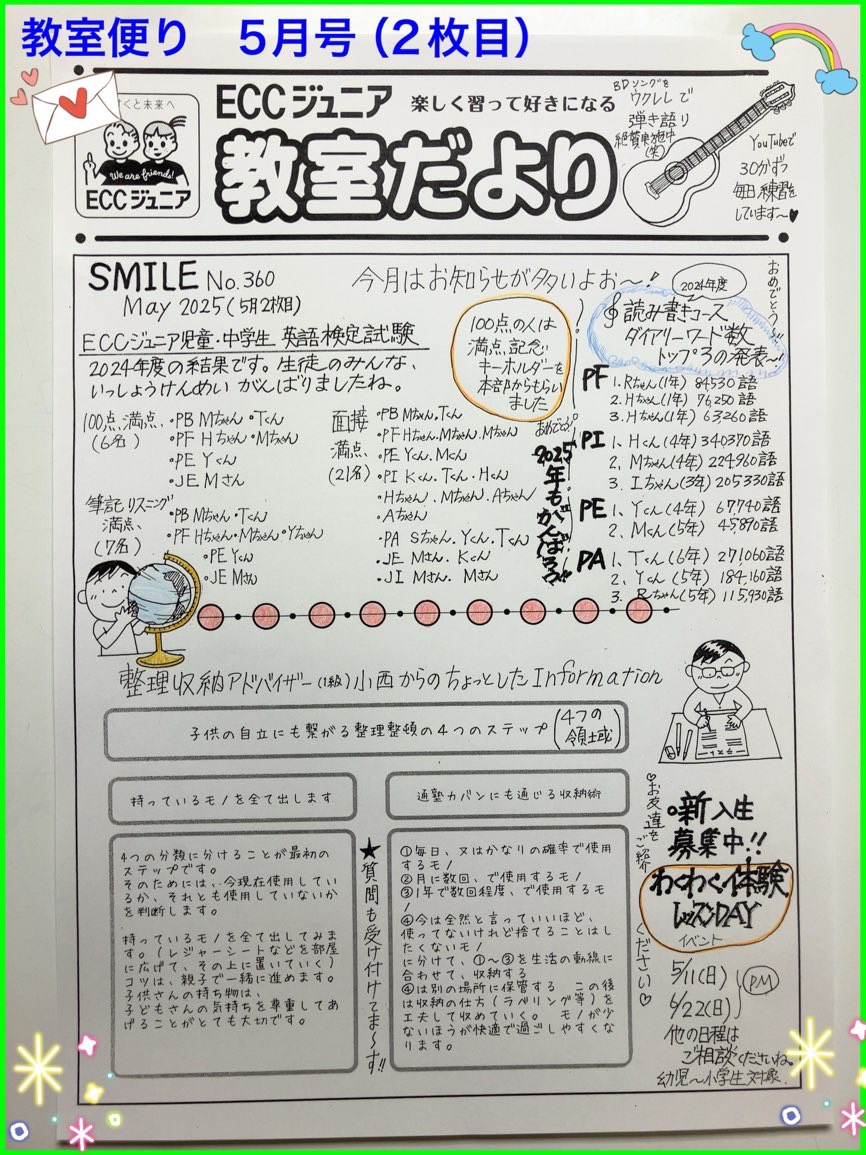 教室便り　5月号（2枚目）
すくと未来へ
We are friends!
ECCジュニア
ECCジュニア 楽しく習って好きになる
教室だより
BDソングを
ウクレレで
弾き語り
絶賛実施中
(笑)
YouTubeで
30分ずつ
毎日練習を
しています〜♥
SMILE No.360
May 2025(5月2枚目)
今月はお知らせが多いよぉ〜!
ECCジュニア児童・中学生 英語検定試験
2024年度の結果です。生徒のみんな、
いっしょうけんめい がんばりましたね。
100点の人は
満点記念
キーホルダーを
本部からもらい
ました
おめでとう!
2025年もがんばろう!!
100点満点
(6名)
・PB Mちゃん ・Tくん
・PF Hちゃん ・Mちゃん
・PE Yくん
・JE Mさん
筆記リスニング
満点
(7名)
・PB Mちゃん ・Tくん
・PF Hちゃん・Mちゃん・Yちゃん
・PE Yくん
・JE Mさん
面接
満点
(21名)
・PB Mちゃん、Tくん
・PF Hちゃん、Mちゃん、Mちゃん
・PE Yくん、Mくん
・PI Kくん、Tくん・Hくん
・Hちゃん、Mちゃん、Aちゃん
・Aちゃん
・PA Sちゃん、Yくん、Tくん
・JE Mさん、Kくん
・JI Mさん、Mさん
おめでとう〜
2024年度
読み書きコース
ダイアリーワード数
トップ3の発表〜!
PF 1. Rちゃん(1年) 84530語
2. Hちゃん(1年) 76,250語
3. Hちゃん(1年) 63,260語
PI 1、Hくん(4年) 340370語
2、Mちゃん(4年) 224960語
3. Iちゃん(3年) 205330語
PE 1、Yくん(4年) 67,740語
2、Mくん(5年) 45,890語
PA 1、Tくん(6年) 271,060語
2、Yくん(5年) 184,160語
3. Rちゃん(5年) 115,930語
整理収納アドバイザー(1級)小西からのちょっとしたInformation
子供の自立にも繋がる整理整頓の4つのステップ(4つの領域)
持っているモノを全て出します
4つの分類に分けることが最初の
ステップです。
そのためには、今現在使用してい
るか、それとも使用していないか
を判断します。
持っているモノを全て出してみま
す。(レジャーシートなどを部屋
に広げて、その上に置いていく)
コツは、親子で一緒に進めます。
子供さんの持ち物は、
子どもさんの気持ちを尊重してあ
げることがとても大切です。
★質問も受け付けてま〜す!!
通塾カバンにも通じる収納術
①毎日、又はかなりの確率で使用
するモノ
②月に数回、で使用するモノ
③1年で数回程度、で使用するモ
ノ
④今は全然と言っていいほど、
使ってないけれど捨てることはし
たくないモノ
に分けて、①〜③を生活の動線に
合わせて、収納する
④は別の場所に保管する　この後
は収納の仕方(ラベリング等)を
工夫して収めていく。モノが少
ないほうが快適で過ごしやすくな
ります。
♡お友達をご紹介ください♡
・新入生
募集中!!
わくわく体験
レッスンDAY
イベント
5/11(日)
6/22(日)
PM
他の日程は
ご相談くださいね。
幼児〜小学生対象.